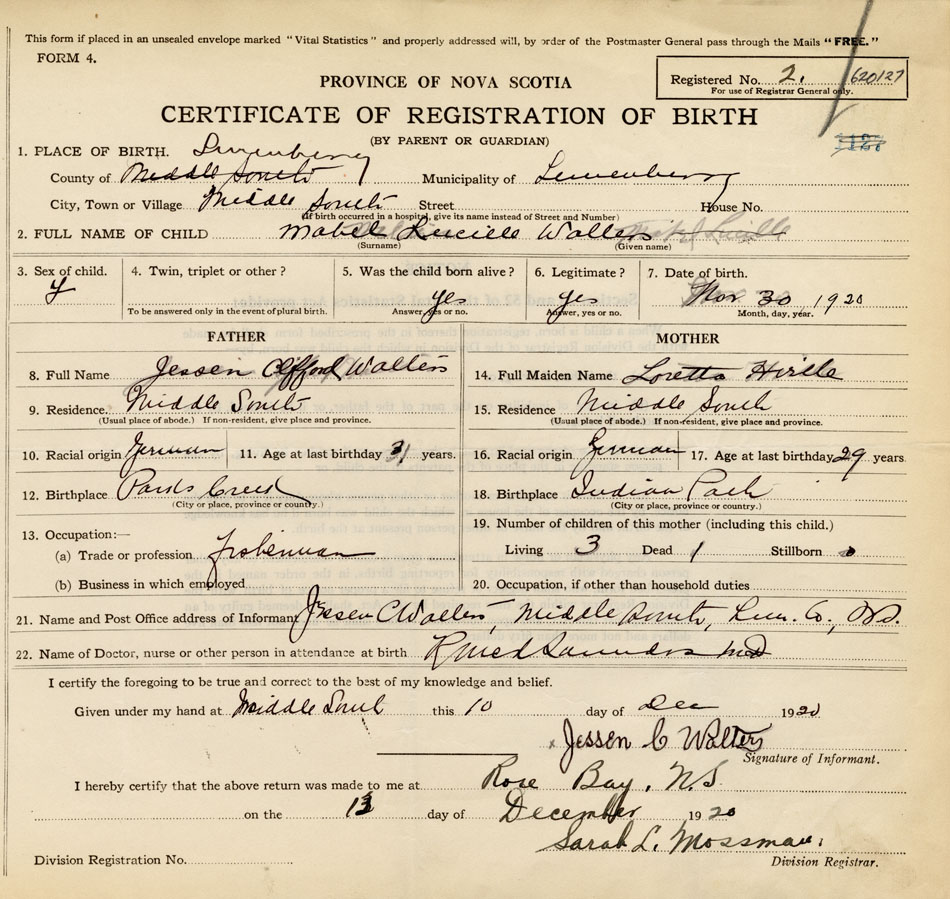 This form if placed in an unsealed envelope marked "Vital Statistics" and properly addressed will, by order of the Postmaster General pass through the Mails "FREE."
FORM 4.
Registered No. 2. 620127
For use of Registrar General only.
PROVINCE OF NOVA SCOTIA
CERTIFICATE OF REGISTRATION OF BIRTH
(BY PARENT OR GUARDIAN)
1. PLACE OF BIRTH. Lunenburg
County of Middle South Municipality of Lunenburg
City, Town or Village Middle South Street House No.
(If birth occurred in a hospital, give its name instead of Street and Number)
2. FULL NAME OF CHILD Mabel Lucille Walters
(Surname) (Given name)
3. Sex of child. 4. Twin, triplet or other? 5. Was the child born alive? 6. Legitimate? 7. Date of birth.
yes yes Nov 30 1920
To be answered only in the event of plural birth. Answer, yes or no. Answer, yes or no. Month, day, year.
FATHER MOTHER
8. Full Name Jessen Clifford Walters 14. Full Maiden Name Loretta Hirtle
9. Residence. Middle South 15. Residence Middle South
(Usual place of abode.) If non-resident, give place and province. (Usual place of abode.) If non-resident, give place and province.
10. Racial origin German 11. Age at last birthday 31 years. 16. Racial origin German 17. Age at last birthday 29 years
12. Birthplace Parks Creek 18. Birthplace Indian Path
(City or place, province or country.) (City or place, province or country.)
13. Occupation:— 19. Number of children of this mother (including this child.)
(a) Trade or profession fisherman Living 3 Dead 1 Stillborn
(b) Business in which employed 20. Occupation, if other than household duties
21. Name and Post Office address of Informant Jessen C Walters, Middle South, Lun. Co., N.S.
22. Name of Doctor, nurse or other person in attendance at birth Saunders MD
I certify the foregoing to be true and correct to the best of my knowledge and belief.
Given under my hand at Middle South this 10 day of Dec 1920
Jessen C Walters
Signature of Informant.
I hereby certify that the above return was made to me at Rose Bay, N.S.
on the 13 day of December 1920
Sarah L. Mossman.
Division Registration No. Division Registrar.